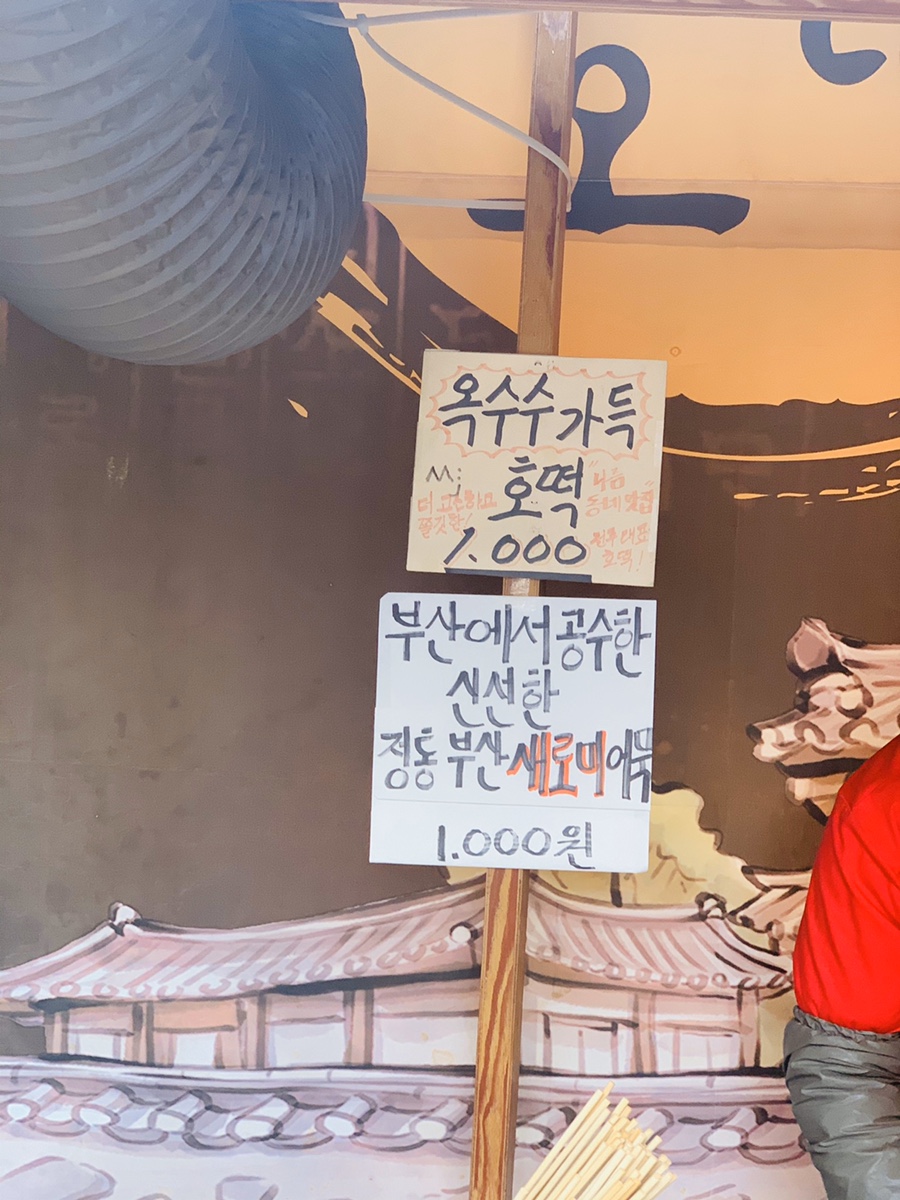 요
옥수수 가득
호떡
더 고소하고
쫄깃함!
"나름
동네 맛집"
원주 대표
호떡!
1.000
부산에서 공수한
신선한
정통 부산 새로미 어묵
1.000원